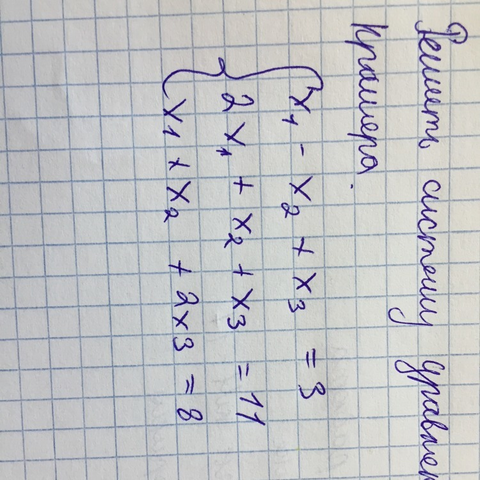 Решить систему уравнен
Крамера.
x1 - x2 + x3 = 3
2x1 + x2 + x3 = 11
x1 + x2 + 2x3 = 8